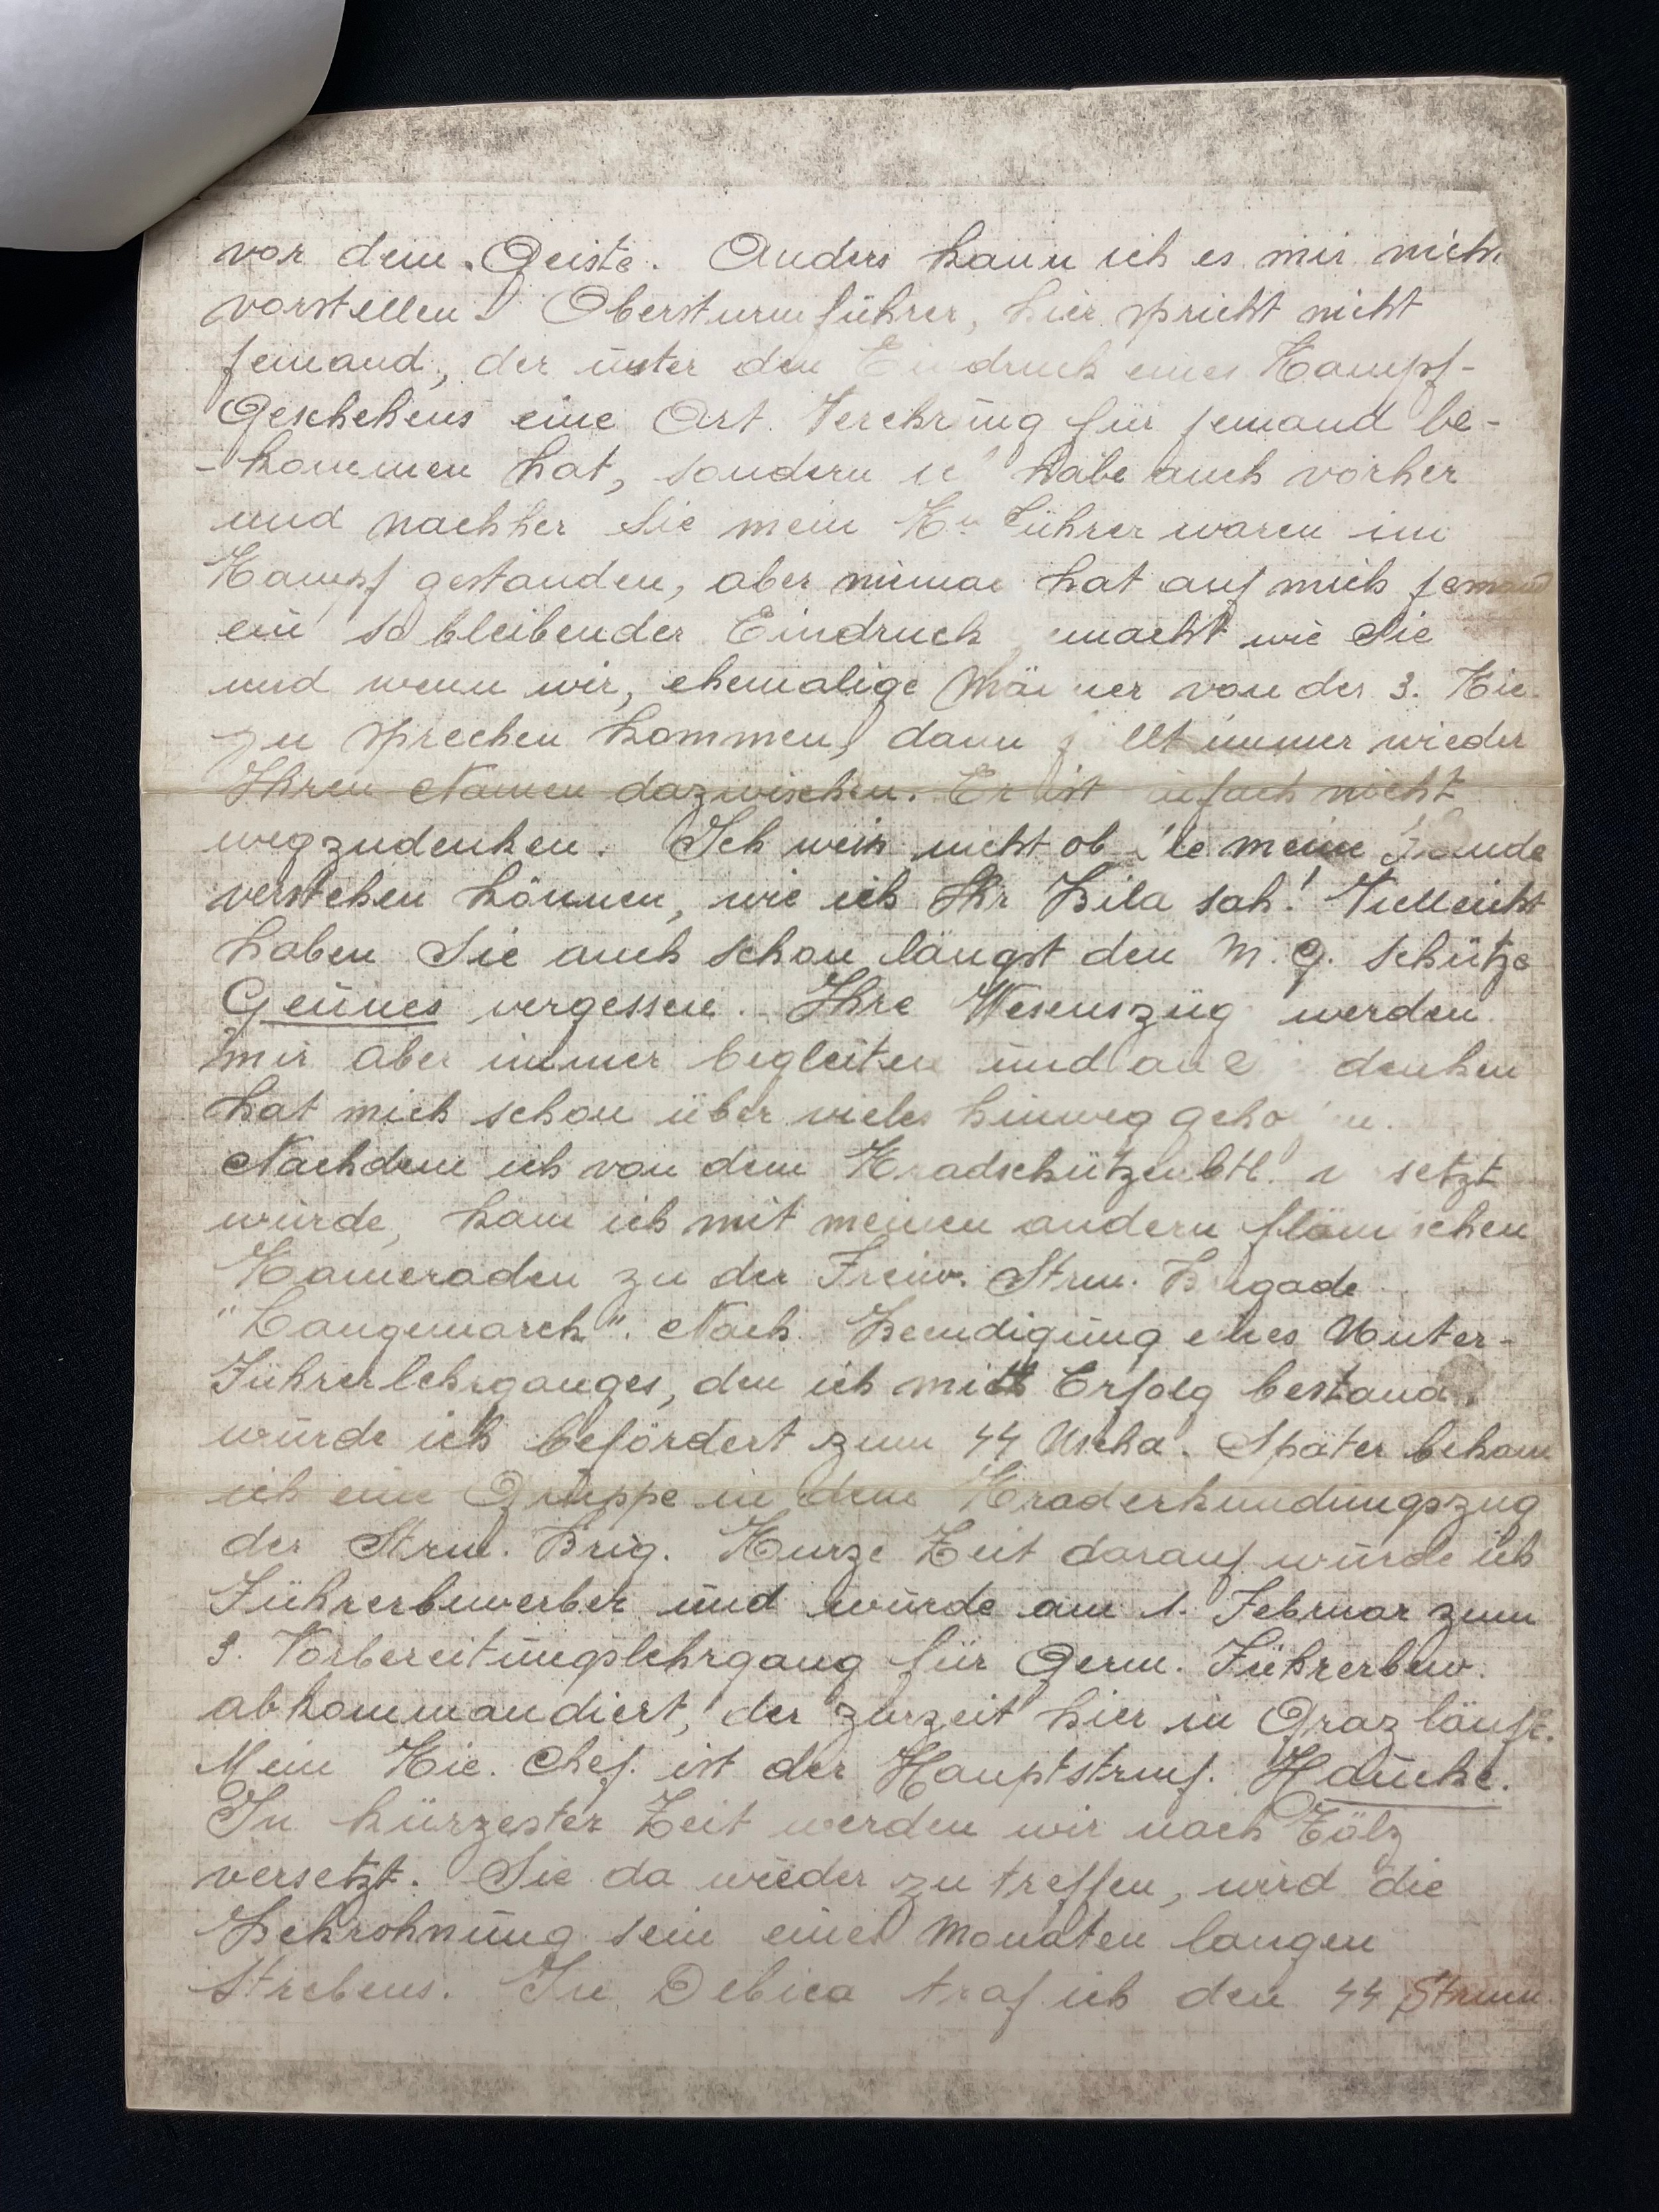 vor dem Geiste. Anders kann ich es mir nich
vorstellen. Obersturmführer, hier spricht nicht
jemand, der unter den Eindruck eines Kampf-
Geschehens eine Art Verehrung für jemand be-
- kommen hat, sondern habe auch vorher
und nachher Sie mein führer waren im
Kampf gestanden, aber hat auf mich jemand
ein so bleibender Eindruck macht wie Sie
und wenn wir, ehemalige Männer von der 3. Kie.
zu sprechen kommen, dann immer wieder
Ihren Namen dazwischen. Er ist nicht
wegzudenken. Ich weis nicht ob meine
verstehen können, wie ich Ihr Bild sah! Vielleicht
haben Sie auch schon längst den M.G. Schütze
Geunes vergessen. Ihre Wesenszüg werden
mir aber immer begleiten und denken
hat mich schon über vieles hinweg
Nachdem ich von dem Kradschützenbtl. setzt
wurde, kam ich mit meinen andern flämischen
Kameraden zu der Freiw. Strm. Brigade
"Langemarck". Nach Beendigung eines Unter-
Führerlehrganges, den ich mit Erfolg bestand,
wurde ich befördert zum SS Uscha. Später bekam
ich eine Gruppe in dem Kraderkundungszug
der Strm. Brig. Kurze Zeit darauf wurde ich
Führerbewerber und wurde am 1. Februar zum
3. Vorbereitungslehrgang für Germ. Führerbew.
abkommandiert, der zurzeit hier in Graz läuft.
Mein Kie. Chef. ist der Hauptstrmf.
In kürzester Zeit werden wir nach Tölz
versetzt. Sie da wieder zu treffen, wird die
Bekrohnung sein eines Monaten langen
Strebens. In Debica traf ich den SS Strmm.